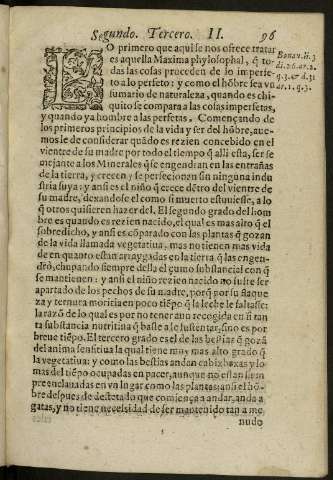 Segundo. Tercero. II. 96
LO primero que aqui se nos ofrece tratar
es aquella Maxima phylosophal, q̃ to
das las cosas proceden de lo imperfe
to a lo perfeto: y como el hõbre sea vn
sumario de naturaleza, quando es chi-
quito se compara a las cosas imperfetas,
y quando ya hombre a las perfetas. Començando de
los primeros principios de la vida y ser del hõbre, aue-
mos le de considerar quãdo es rezien concebido en el
vientre de su madre por todo el tiempo q̃ alli esta, ser se
mejante a los Minerales q̃ se engendran en las entrañas
de la tierra, y crecen y se perfecionan sin ninguna indu
stria suya: y ansi es el niño q̃ crece dẽtro del vientre de
su madre, dexandose el como si muerto estuuiesse, a lo
q̃ otros quisieren hazer del. El segundo grado del hom
bre es quando es rezien nacido, el qual es mas alto q̃ el
sobredicho, y ansi es cõparado con las plantas q̃ gozan
de la vida llamada vegetatiua, mas no tienen mas vida
de en quanto estan arraygadas en la tierra q̃ las engen-
drò, chupando siempre della el gumo substancial con q̃
se mantienen: y ansi el niño rezien nacido no sufre ser
apartado de los pechos de su madre, porq̃ por su flaque
za y ternura moriria en poco tiẽpo q̃ la leche le faltasse:
la razõ de lo qual es por no tener aun recogida en si tan
ta substancia nutritiua q̃ baste a le sustentar, sino es por
breue tiẽpo. El tercero grado es el de las bestias q̃ gozã
del anima sensitiua la qual tiene muy mas alto grado q̃
la vegetatiua: y como las bestias andan cabizbaxas y lo
mas del tiẽpo ocupadas en pacer, aunque no estan siem
pre enclauadas en vn lugar como las plantas: ansi el hõ-
bre despues de destetado que comiença a andar, anda a
gatas, y no tiene necessidad de ser mantenido tan a me
nudo
Bonau. li. 3
q. 3. et d. 31
ar. 1. q. 3.